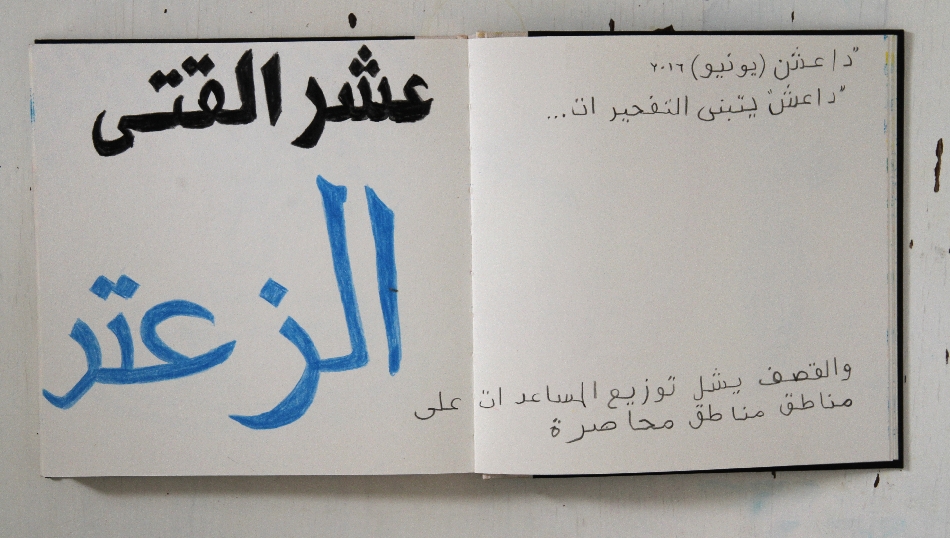 عشر القتى
الزعتر
"داعش (يونيو) ٢٠١٦
"داعش" يتبنى التفجيرات...
والقصف يشل توزيع المساعدات على
مناطق مناطق محاصرة